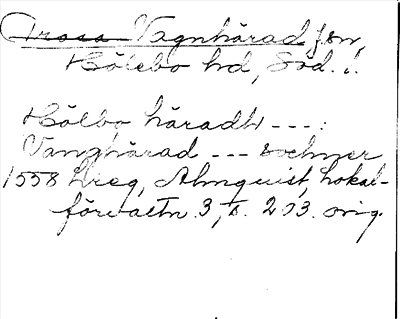 Trosa-Vagnhärad fsn,
Hölebo hd, Söd. l.
Hölbo häradh ---:
Vanghärad --- sochner
1558 Lreg, Almquist, Lokal-
förvaltn. 3, s. 203. orig.